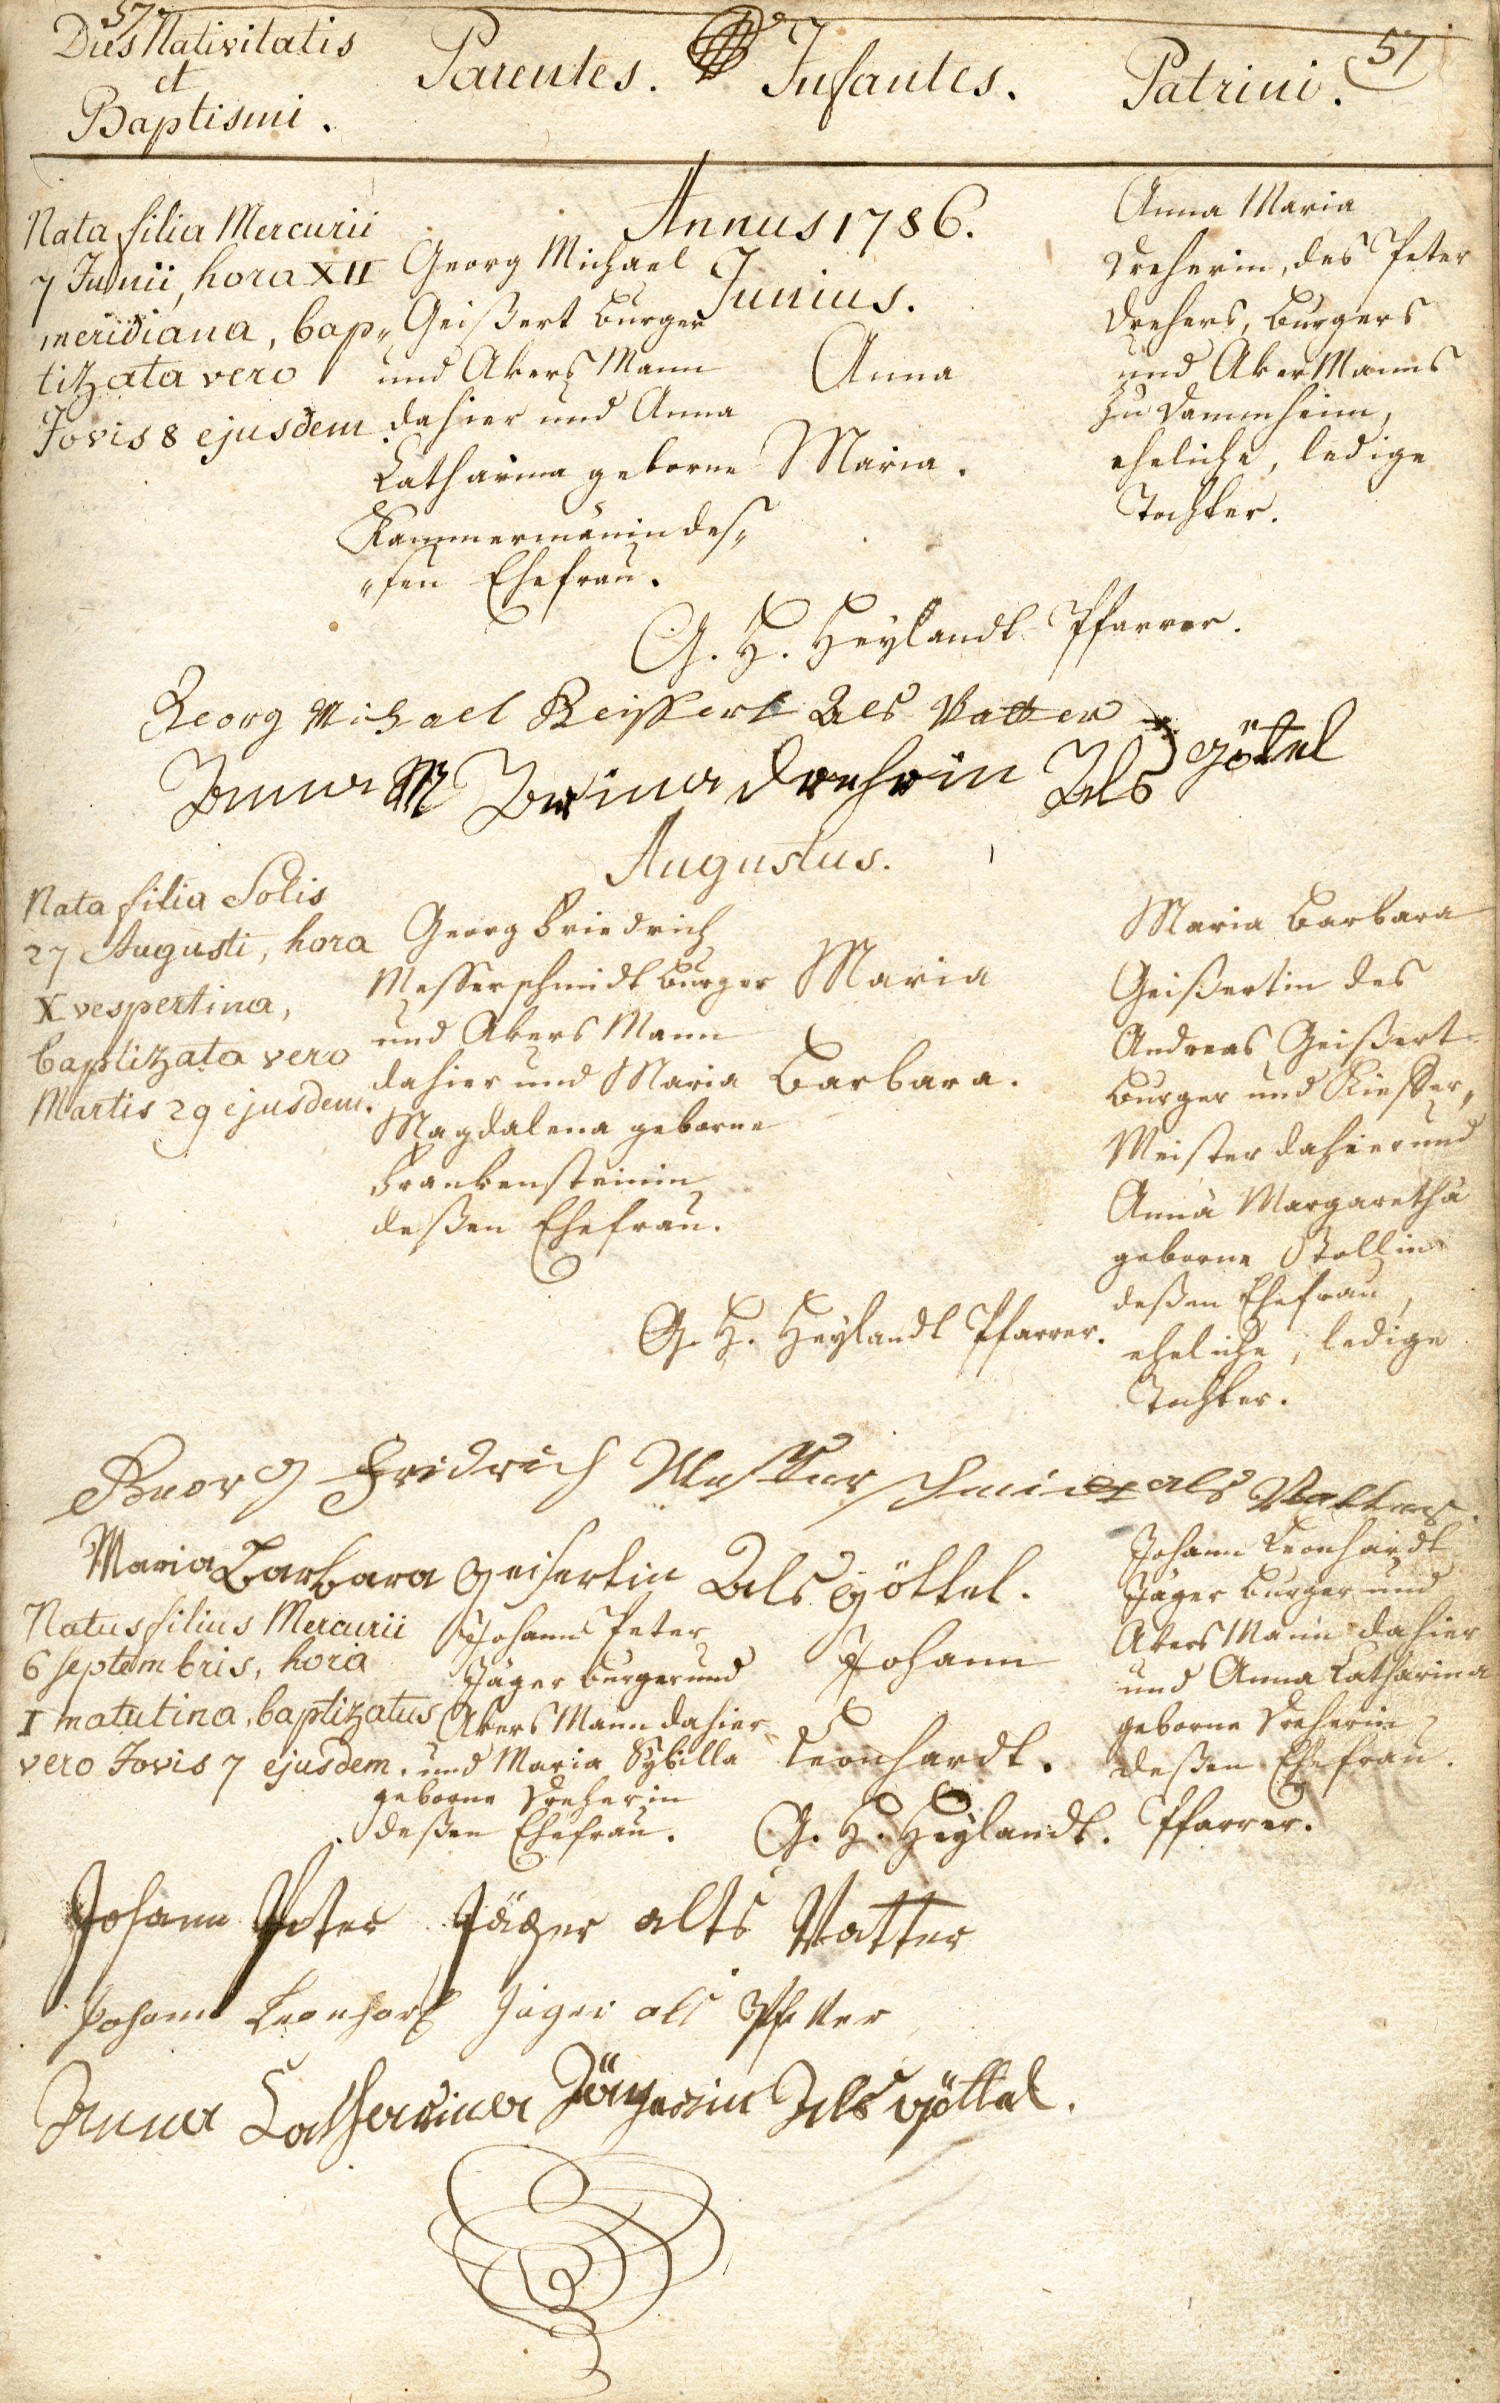 57
57
Dies Nativitatis
et
Baptismi.
Parentes.
Infantes.
Patrini.
Annus 1786.
Junius.
Nata filia Mercurii
7 Junii, hora XII
meridiana, bap„
tizata vero
Jovis 8 ejusdem
Georg Michael
Geißert Burger
und Akers Mann
dahier und Anna
Catharina geborne
Kammermänin des„
„sen Ehefrau.
Anna
Maria.
Anna Maria
Dreherin, des Peter
Drehers, Burgers
und Aker Manns
zu Dammheim,
eheliche, ledige
Tochter.
G. H. Heylandt Pfarrer.
Georg Michael Geissert Als Vatter
Anna M Arina Drehrin Als götel
Augustus.
Nata filia Solis
27 Augusti, hora
X vespertina,
baptizata vero
Martis 29 ejusdem.
Georg Friedrich
Messerschmidt Burger
und Akers Mann
dahier und Maria
Magdalena geborne
Frankensteinin
deßen Ehefrau.
Maria
Barbara.
Maria Barbara
Geißertin des
Andreas Geißert
Burger und Kiesser„
Meister dahier und
Anna Margaretha
geborne Stollin
deßen Ehefrau,
eheliche, ledige
Tochter.
G. H. Heylandt Pfarrer.
Georg Fridrich Messerschmidt als Vatter.
Maria Barbara geisertin Als göttel.
Natus filius Mercurii
6 Septembris, hora
I matutina, baptizatus
vero Jovis 7 ejusdem.
Johann Peter
Jäger Burger und
Akers Mann dahier
und Maria Sybilla
geborne Dreherin
deßen Ehefrau.
Johann
Leonhardt.
Johann Leonhardt
Jäger Burger und
Akers Mann dahier
und Anna Catharina
geborne Dreherin
deßen Ehefrau.
G. H. Heylandt. Pfarrer.
Johann Peter Jäger alts Vatter
Johann Leonhart Jäger als Pfetter
Anna Catharina Jägerin Als göttel.